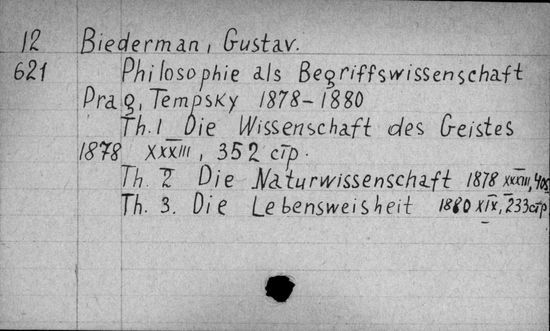 12 Biederman, Gustav.
621 Philosophie als Begriffswissenschaft
Prag, Tempsky 1878-1880
Th. 1 Die Wissenschaft des Geistes
1878 XXXIII, 352 стр.
Th. 2 Die Naturwissenschaft 1878 XXXIII, 405
Th. 3. Die Lebensweisheit 1880 XIX, 233 стр